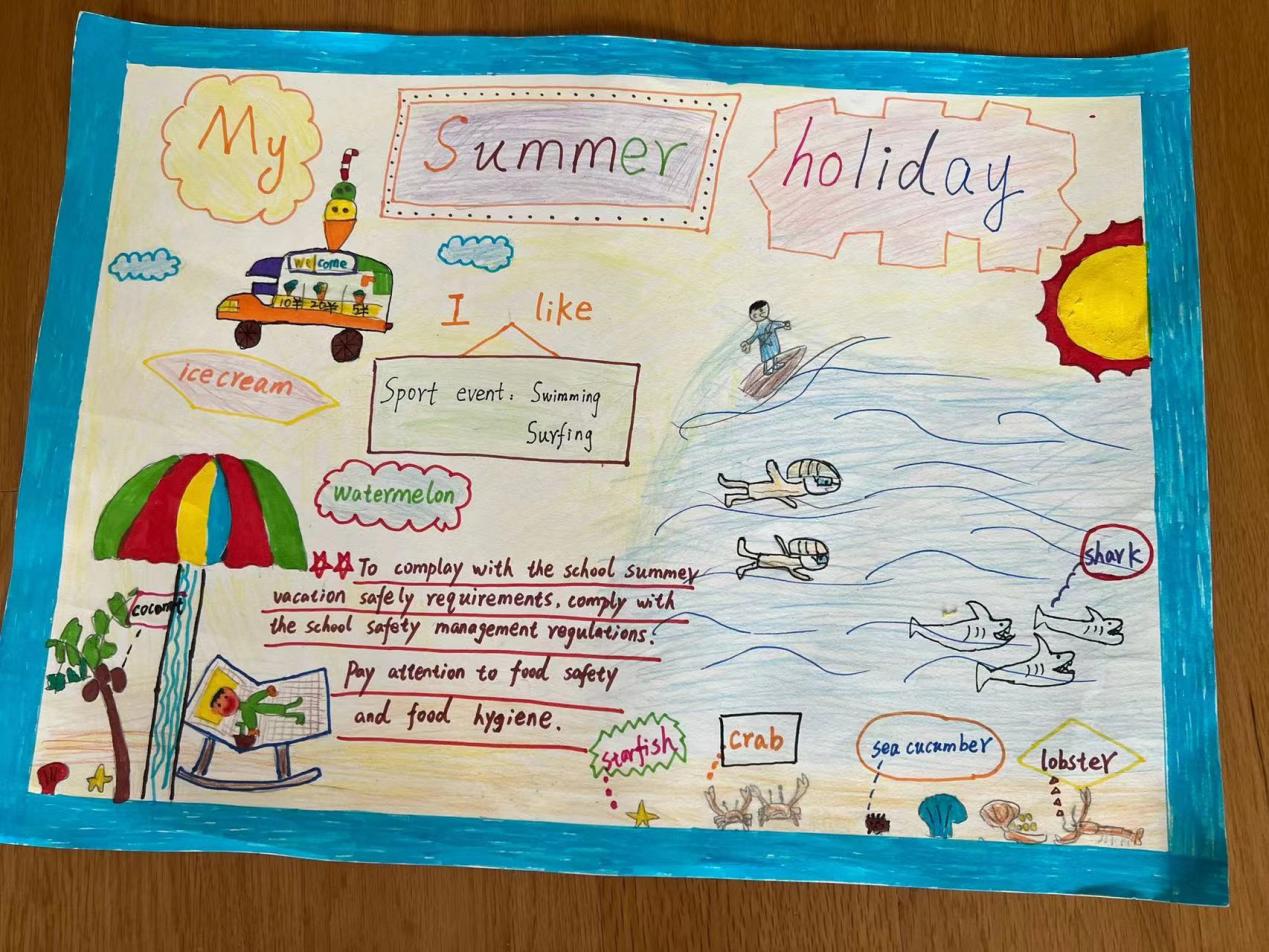 My Summer holiday
welcome
10¥ 20¥ 5¥
I like
icecream
Sport event: Swimming
Surfing
watermelon
To complay with the school summer
vacation safely requirements, comply with
the school safety management regulations.
Pay attention to food safety
and food hygiene.
coconut
shark
starfish
crab
sea cucumber
lobster